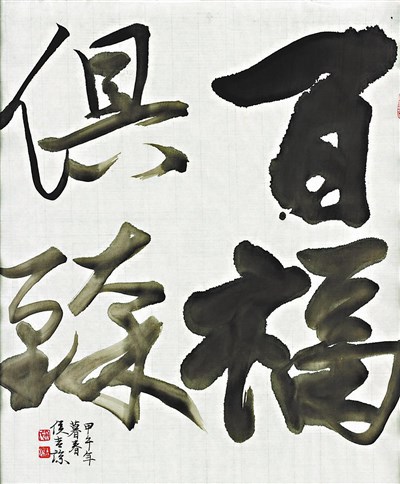 百福
俱臻
甲午年
暮春
侯吉諒